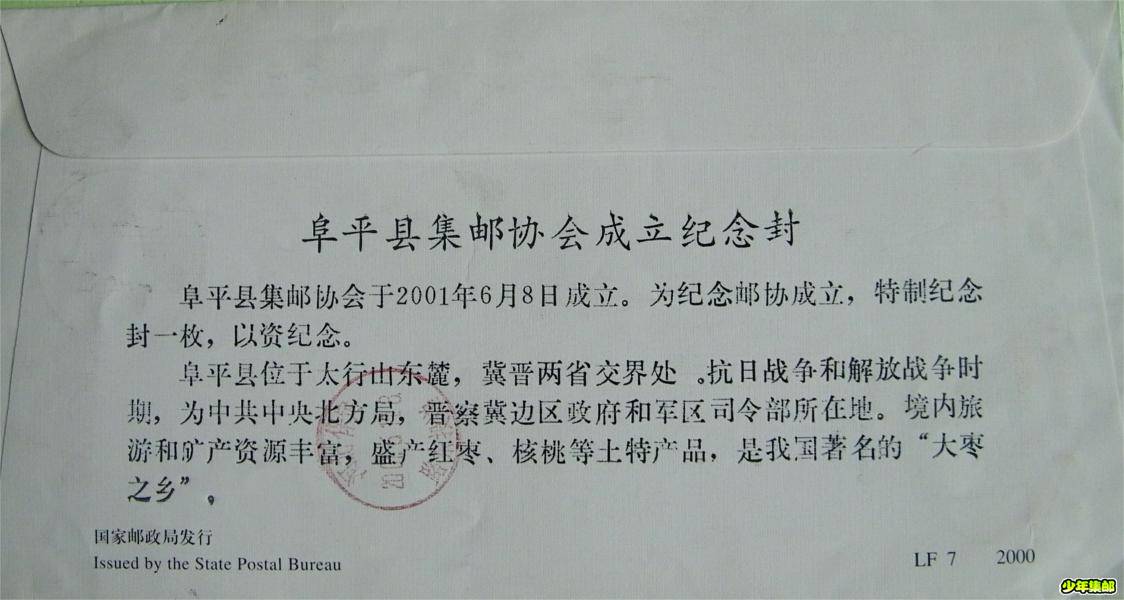 阜平县集邮协会成立纪念封
阜平县集邮协会于2001年6月8日成立。为纪念邮协成立，特制纪念
封一枚，以资纪念。
阜平县位于太行山东麓，冀晋两省交界处。抗日战争和解放战争时
期，为中共中央北方局，晋察冀边区政府和军区司令部所在地。境内旅
游和矿产资源丰富，盛产红枣、核桃等土特产品，是我国著名的“大枣
之乡”。
国家邮政局发行
Issued by the State Postal Bureau
LF 7 2000
少年集邮